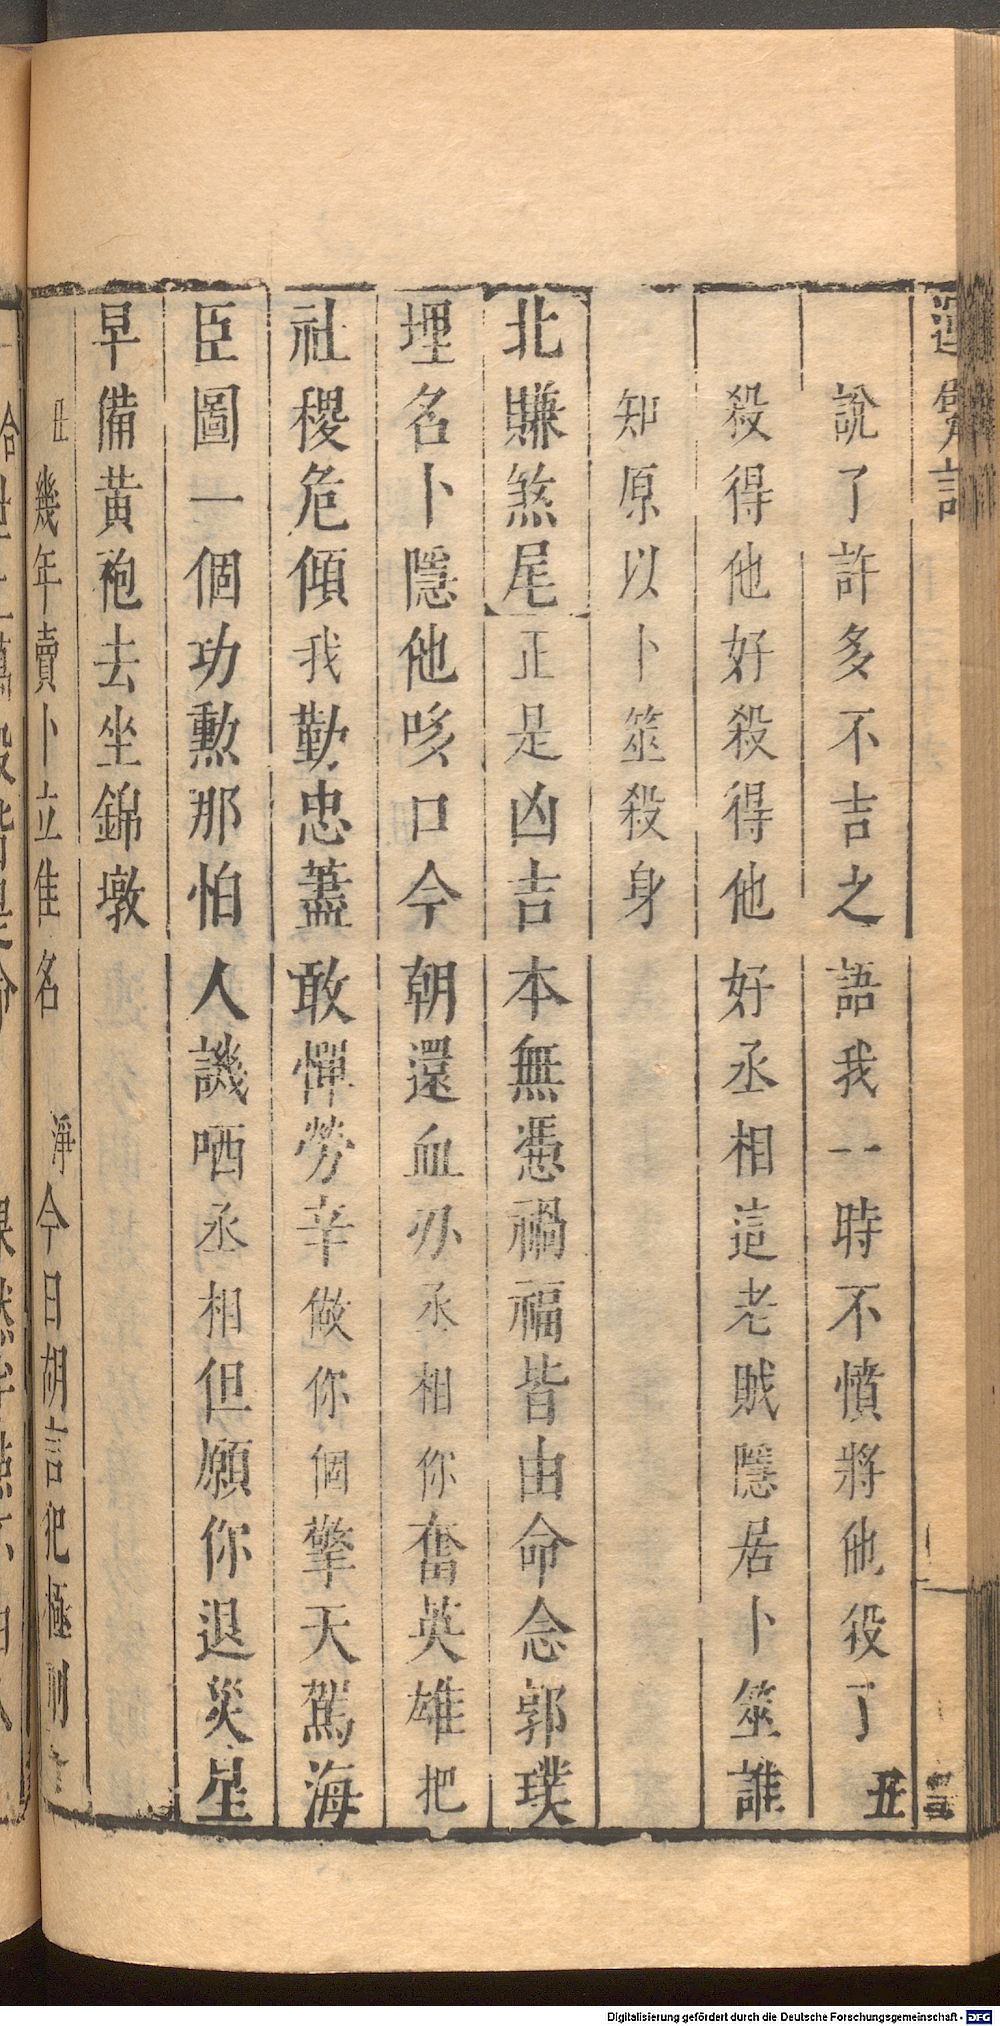 運甓記
說了許多不吉之語我一時不憤將他殺了 丑
殺得他好殺得他好丞相這老賊隱居卜筮誰
知原以卜筮殺身
北賺煞尾正是凶吉本無憑禍福皆由命念郭璞
埋名卜隱他咳口今朝還血刃丞相你奮英雄把
社稷危傾我勤忠藎敢憚勞辛做你個擎天駕海
臣圖一個功勲那怕人譏哂丞相但願你退災星
早備黃袍去坐錦墩
丑 幾年賣卜立隹名 淨 今日胡言犯極刑
Digitalisierung gefördert durch die Deutsche Forschungsgemeinschaft - DFG